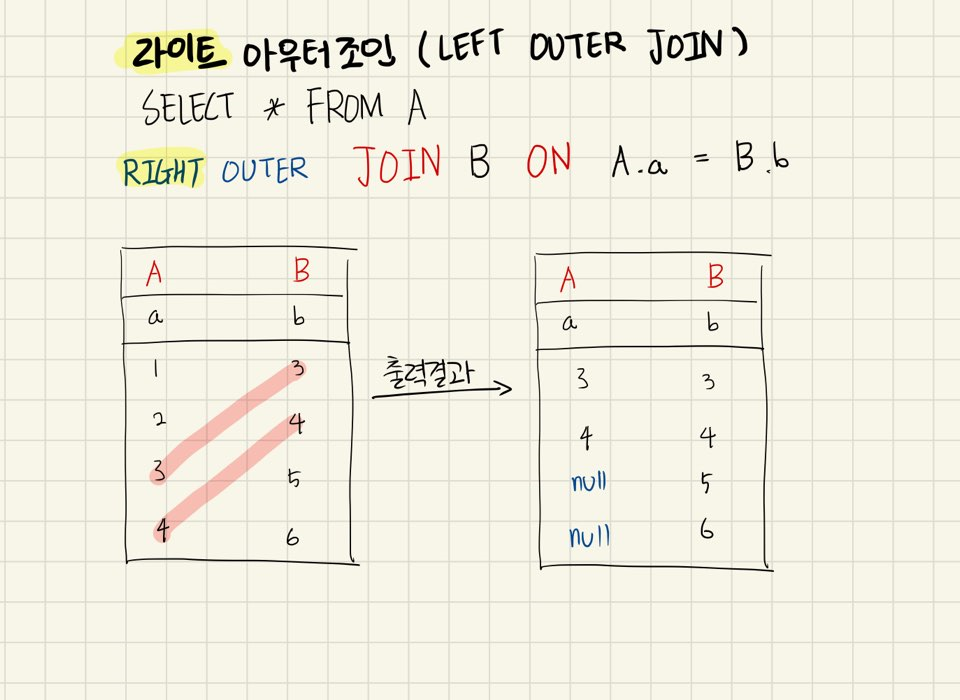 라이트 아우터조인 (LEFT OUTER JOIN)
SELECT * FROM A
RIGHT OUTER JOIN B ON A.a = B.b
A B
a b
1 3
2 4
3 5
4 6
출력결과
A B
a b
3 3
4 4
null 5
null 6